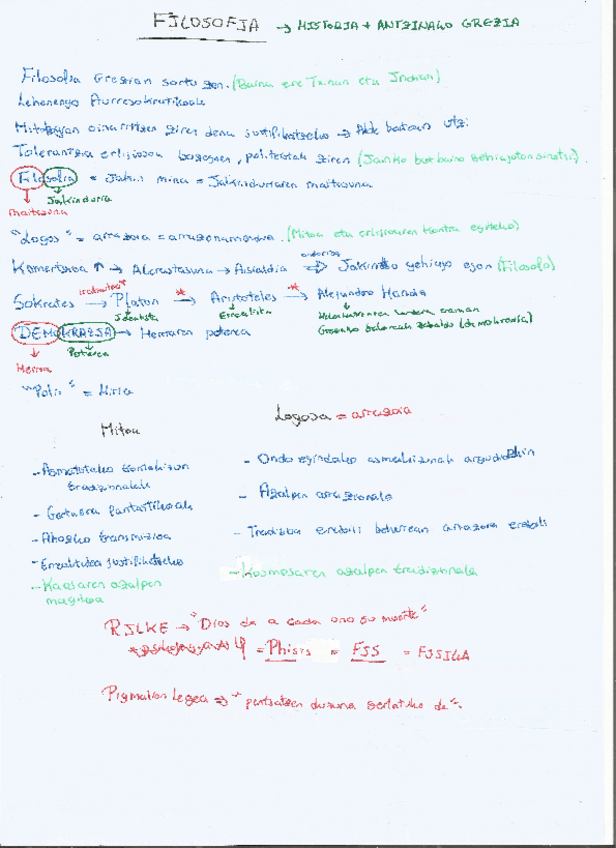 FILOSOFIA → HISTORIA + ANTZINAKO GREZIA
Filosofia Grezian sortu zen. (Baina ere Txinan eta Indian)
Lehenengo Aurresokratikoak
Mitologian oinarritzen ziren dena justifikatzeko → Alde batera utzi
Tolerantzia erlijiosoa bazegoen, politeistak ziren (Jainko bat baino gehiagotan sinetsi).
Filosofia = Jakin mina = Jakinduriaren maitasuna
Jakinduria
maitasuna
"Logos" = arrazoia = arrazonamendua. (Mitoa eta erlijioaren kontra egiteko)
Komertzioa ↑ → Aberastasuna → Aisialdia ⇒ Jakiteko gehiago egon (Filosofo)
Sokrates → Platon → Aristoteles → Alejandro Handia
Idealista
Errealista
DEMOKRAZIA → Herriaren poterea
Poterea
Herria
"Polis" = Hiria
Logosa = arrazoia
Mitoa
- Asmatutako kontakizun tradizionalak
- Gertaera fantastikoak
- Ahozko transmisioa
- Errealitatea justifikatzeko
- Kaosaren azalpen magikoa
- Ondo egindako asmakizunak argudioekin
- Azalpen arrazionala
- Tradizioa erabili beharrean arrazoia erabili
- Kosmosaren azalpen tradizionala
RILKE → "Dios da a cada uno su muerte"
= Phisis = FIS = FISIKA
Pigmalion Legea ⇒ "pentsatzen duzuna gertatuko da".